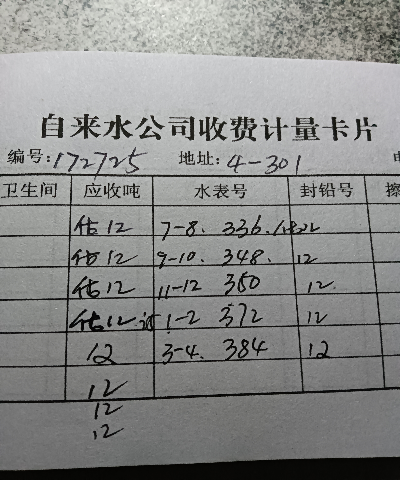 自来水公司收费计量卡片
编号: 172725 地址: 4-301
卫生间 应收吨 水表号 封铅号
估12 7-8. 336.
估12 9-10. 348. 12
估12 11-12 360 12
估12 1-2 372 12
12 3-4. 384 12
12
12
12